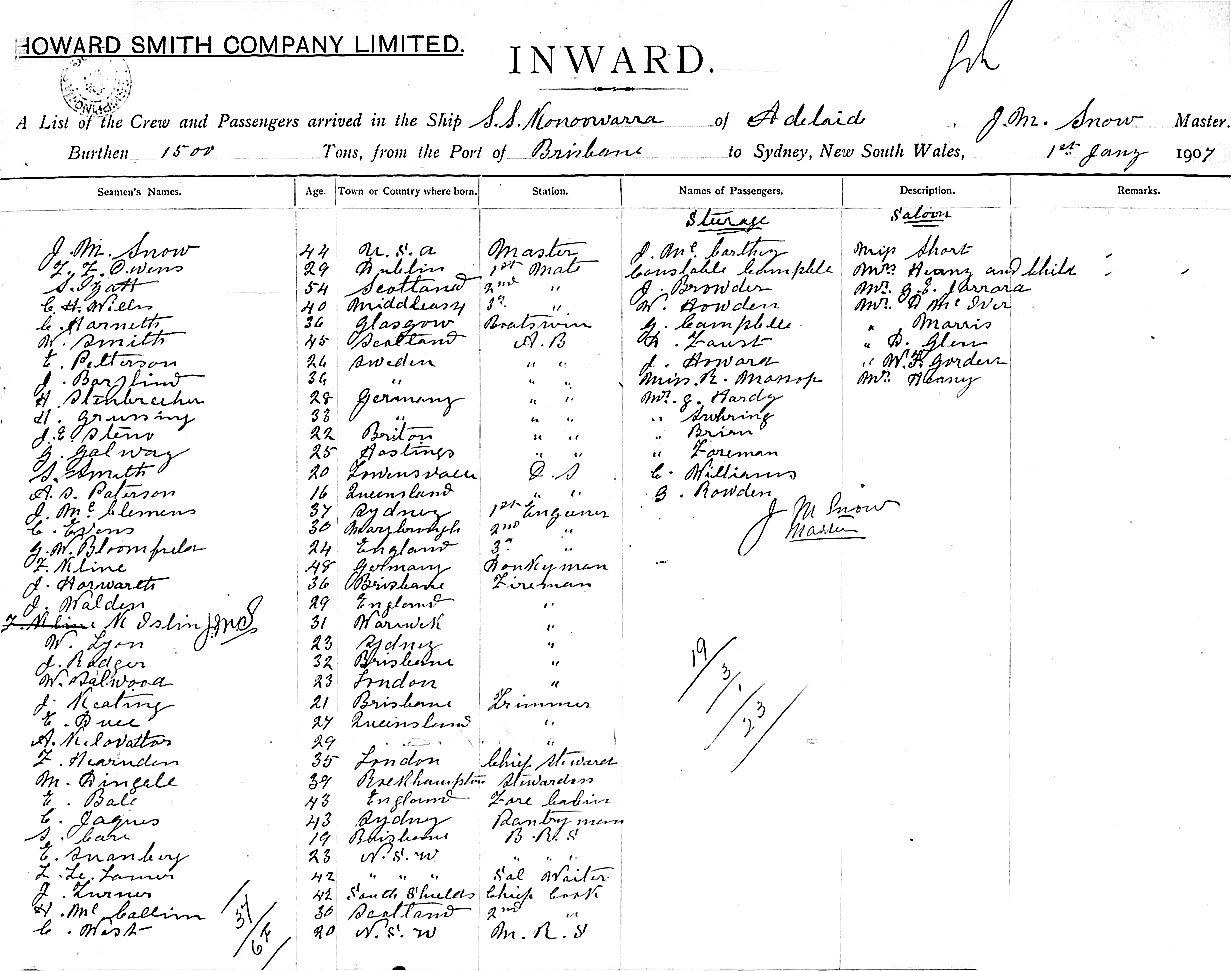 HOWARD SMITH COMPANY LIMITED.
INWARD.
A List of the Crew and Passengers arrived in the Ship S.S. Konoowarra of Adelaid J. M. Snow Master.
Burthen 1500 Tons, from the Port of Brisbane to Sydney, New South Wales, 1st Jany 1907
Seamen's Names. Age. Town or Country where born. Station. Names of Passengers. Description. Remarks.
Sturage Saloon
J. M. Snow 44 U. S. A Master J. Mc Carthey Miss Short
Owens 29 Dublin 1st Mate Constable Campble Mrs Heany and Child
S. Pyatt 54 Scotland 2nd " J. Browder Mr. Jarrara
C. H. 40 3rd " W. Howden Mr. D Mc Iver
C. Harneth 36 Glasgow Boatswin G. Campble " Marris
W. Smith 45 Scotland A. B Faust " D. Glen
E. Petterson 26 Sweden " " J. Howard " W. F. Gorden
J. 36 " " " Miss. R. Mossop Mr. Heany
H. 28 Germany " " Mr. G. Hardy
H. Grussing 33 " " " "
J. E. Steno 22 Briton " " " Brien
G. Galway 25 Hastings " " " Foreman
S. Smith 20 D. S C. Williams
A. S. Paterson 16 Queensland " " G. Rowden
J. Mc Clemens 37 Sydney 1st Enginer J M Snow
C. Evens 30 Maryborough 2nd " Master
G. W. Bloomfield 24 England 3rd "
F. Kline 48 Germany Donkyman
J. Horwarth 36 Brisbane Fireman
J. Walden 29 England "
F. Kline K Islin J.M.S 31 Warwick "
W. Lyon 23 Sydney "
J. Rodger 32 Brisbane "
W. Balwood 23 London "
J. Keating 21 Brisbane Trimmer
E. 27 Queinsland "
A. 29 "
F. Hearnden 35 London Chief Steward
M. Dingale 39 Rockhampton Stewardes
E. Bale 43 England Fore Cabin
C. Jaques 43 Sydney Pantryman
S. Carr 19 Brisbane B. R. S
E. Svanberg 23 N. S. W " " "
42 " " " Sal Waiter
J. Turner 42 South Shields Chief Cook
H. Mc Callim 30 Scotland 2nd "
C. West 20 N. S. W M. R. S
19/3/23
37/62